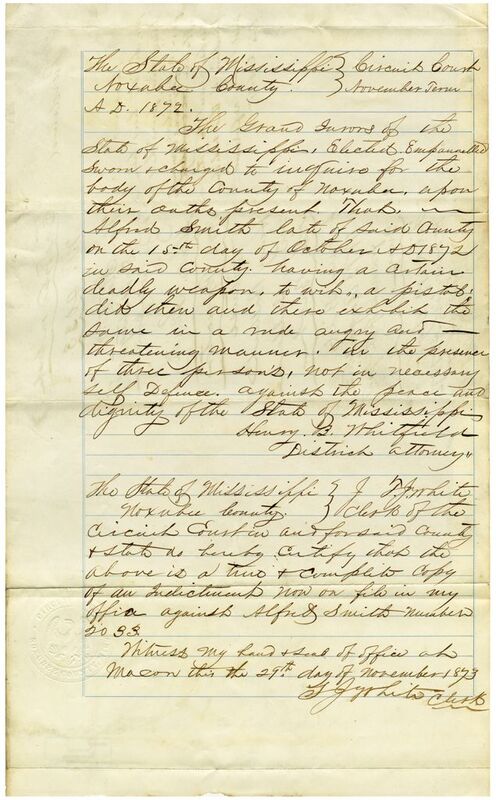 The State of Mississippi } Circuit Court
Noxubee County. } November Term
A.D. 1872.
The Grand Jurors of the
State of Mississippi, Elected Empannelled
Sworn & charged to inquire for the
body of the County of Noxubee, upon
their oaths present. That
Alfred Smith late of said County
on the 15th day of October AD 1872
in said County having a certain
deadly weapon, to wit, a pistol.
did then and there exhibit the
same in a rude angry and
threatening manner. in the presence
of three persons, not in necessary
self Defence. against the peace and
dignity of the State of Mississippi
Henry. B. Whitfield
District attorney"
The State of Mississippi } I White
Noxubee County. } Clerk of the
Circuit Court in and for said County
& State do hereby certify that the
above is a true & complete copy
of an Indictment now on file in my
office against Alfred Smith number
2033.
Witness my hand & seal of office at
Macon this the 29th day of November 1873
White Clerk